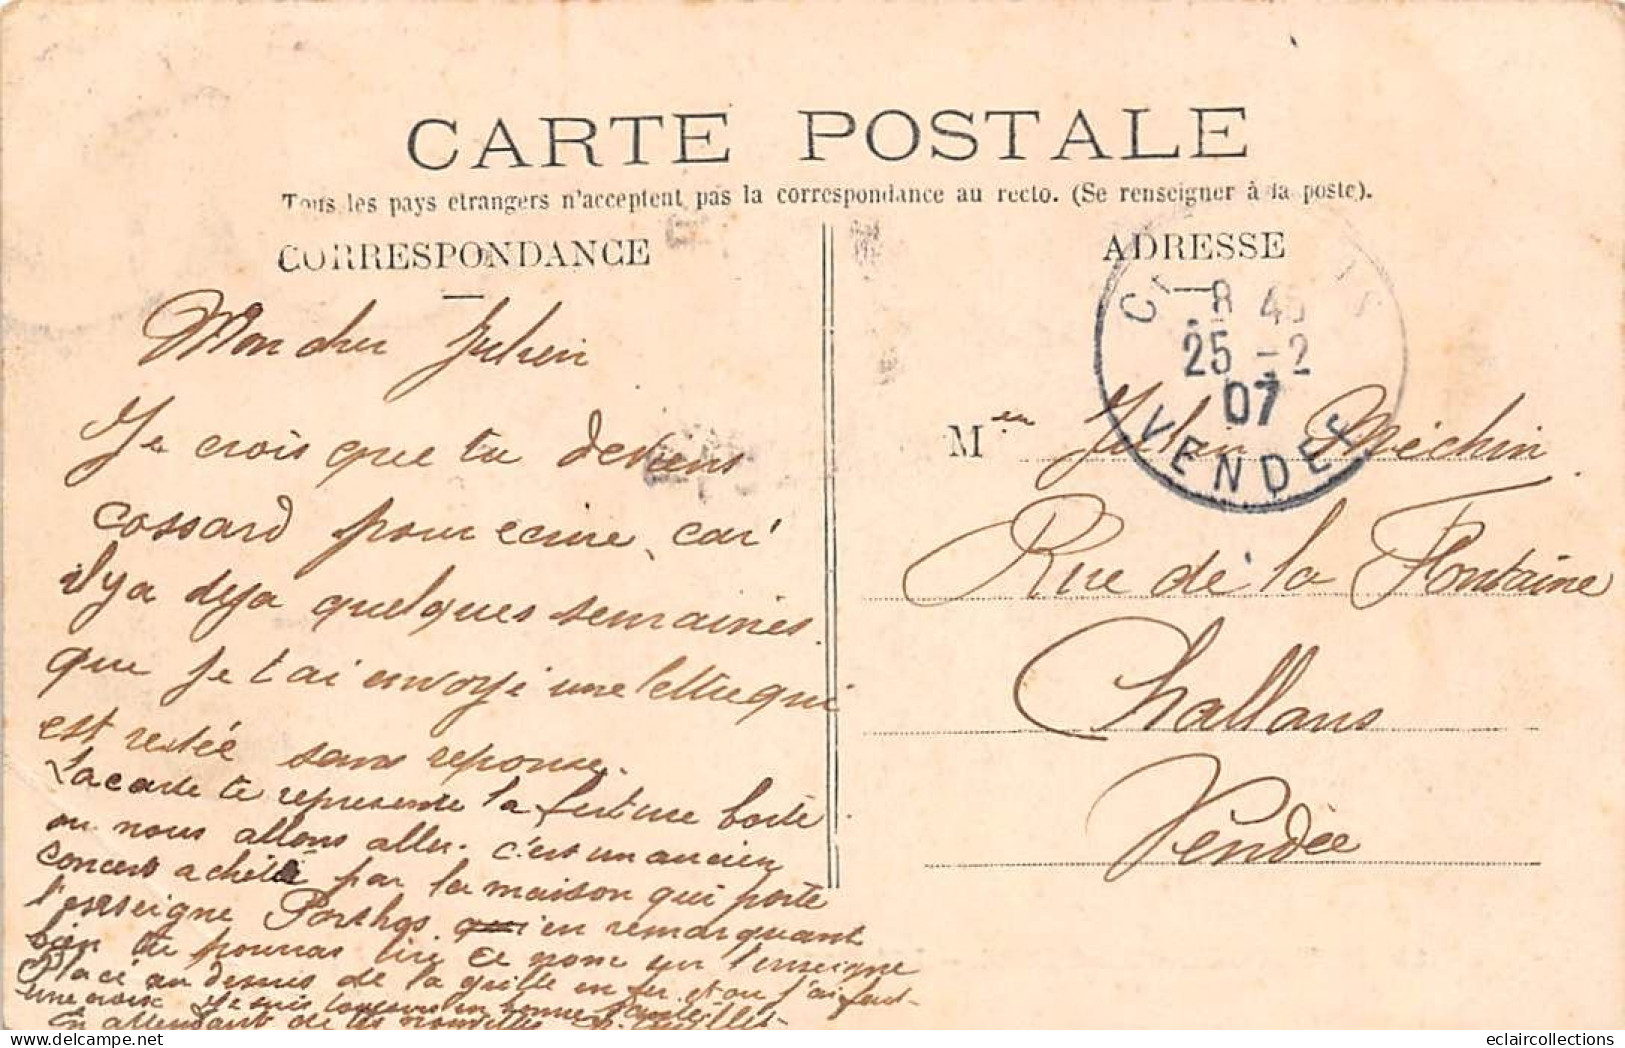 CARTE POSTALE
Tous les pays etrangers n'acceptent pas la correspondance au recto. (Se renseigner à la poste).
CORRESPONDANCE
Mon cher Julien
Je crois que tu deviens
cossard pour ecrire, car
il y a deja quelques semaines
que je t'ai envoyé une lettre qui
est restée sans reponse.
La carte te represente la future boite
ou nous allons aller. c'est un ancien
concert acheté par la maison qui porte
l'enseigne Porthos qui en remarquant
bien tu pourras lire ce nom sur l'enseigne
Placé au dessus de la grille en fer et ou j'ai fait
une croix Je suis toujours en bonne santé
En attendant de tes nouvelles
ADRESSE
8 45
25 -2
07
VENDEE
M Julien Méchin
Rue de la Fontaine
Challans
Vendée
eclaircollections